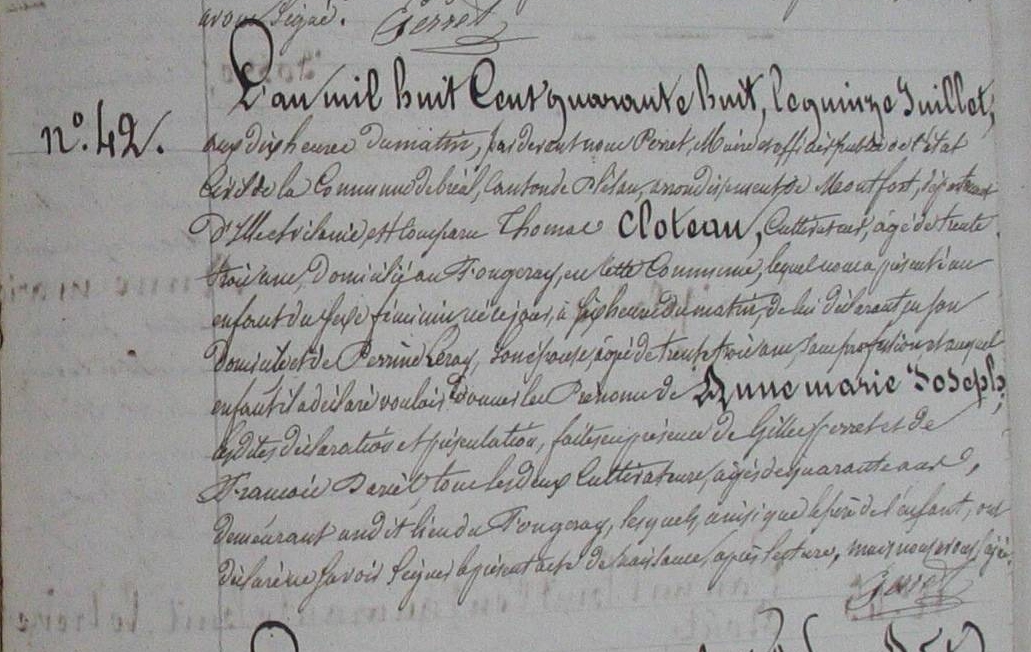 avons signé. Perret
L'an mil huit Cent quarante huit, le quinze Juillet,
n.° 42.
aux dix heures du matin, par devant nous Perret, Maire et officier public de l'état
Civil de la Commune de bréal, Canton de Plélan, arrondissement de Montfort, département
D'Ille et vilaine, est Comparu Thomas Cloteau, Cultivateur, âgé de trente
trois ans, Domicilié au Fougeray, en Cette Commune, lequel nous a présenté un
enfant du sexe féminin né ce jour, à six heures du matin, de lui déclarant en son
domicile et de Perrine Leray, son épouse, âgée de trente trois ans, sans profession, et auquel
enfant il a déclaré vouloir donner les Prénoms de Anne marie Joseph;
lesdites déclaration et présentation, faites en présence de Gilles perret et de
Francois tous les deux Cultivateurs, agés de quarante ans,
demeurant au dit lieu du Fougeray, lesquels, ainsi que le père de l'enfant, ont
déclaré ne savoir Signer le présent acte de naissance, après lecture, mais nous avons signé.
Perret